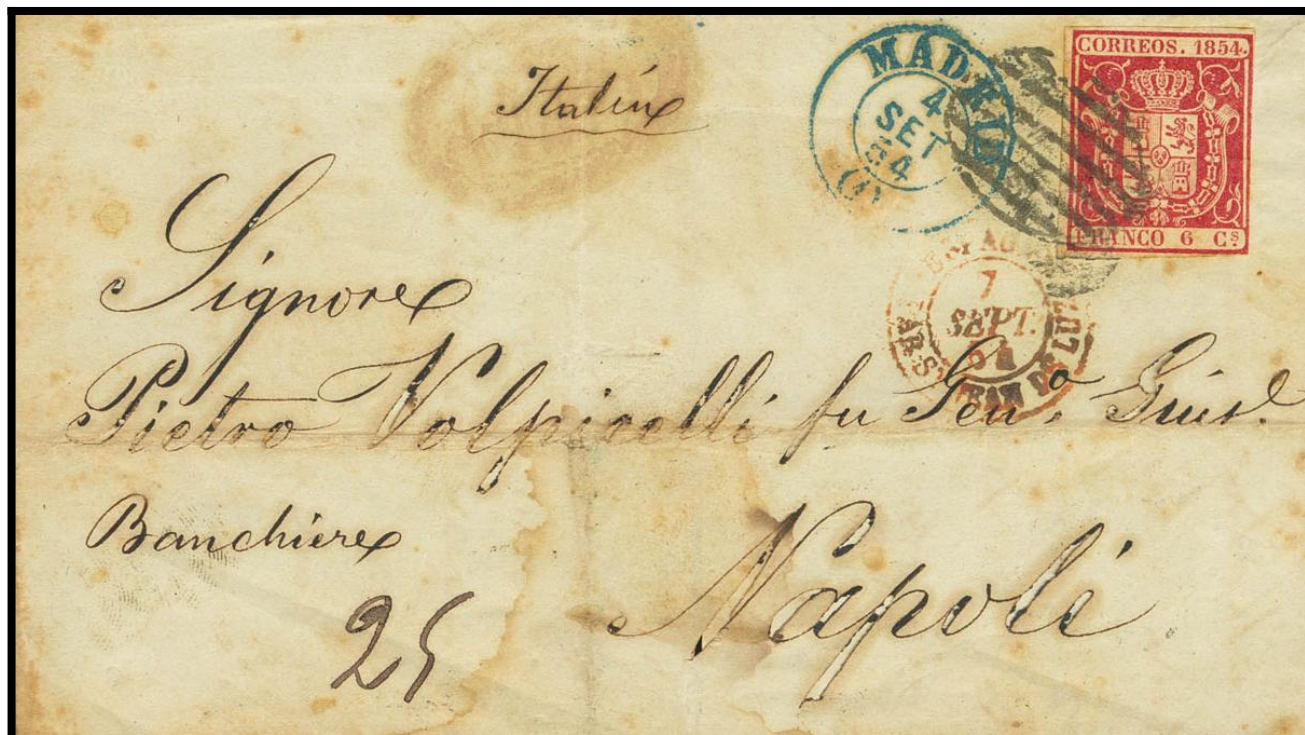 Italia
MADRID
4
SET
54
(1)
CORREOS. 1854.
FRANCO 6 Cs.
7
SEPT.
54
JEAN DE LUZ
Signore
Pietro Volpicelli fu Gen.o
Banchiere
Napoli
25